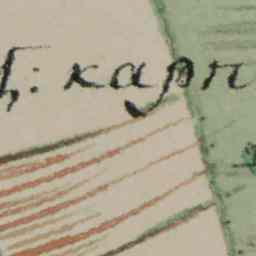 : карп